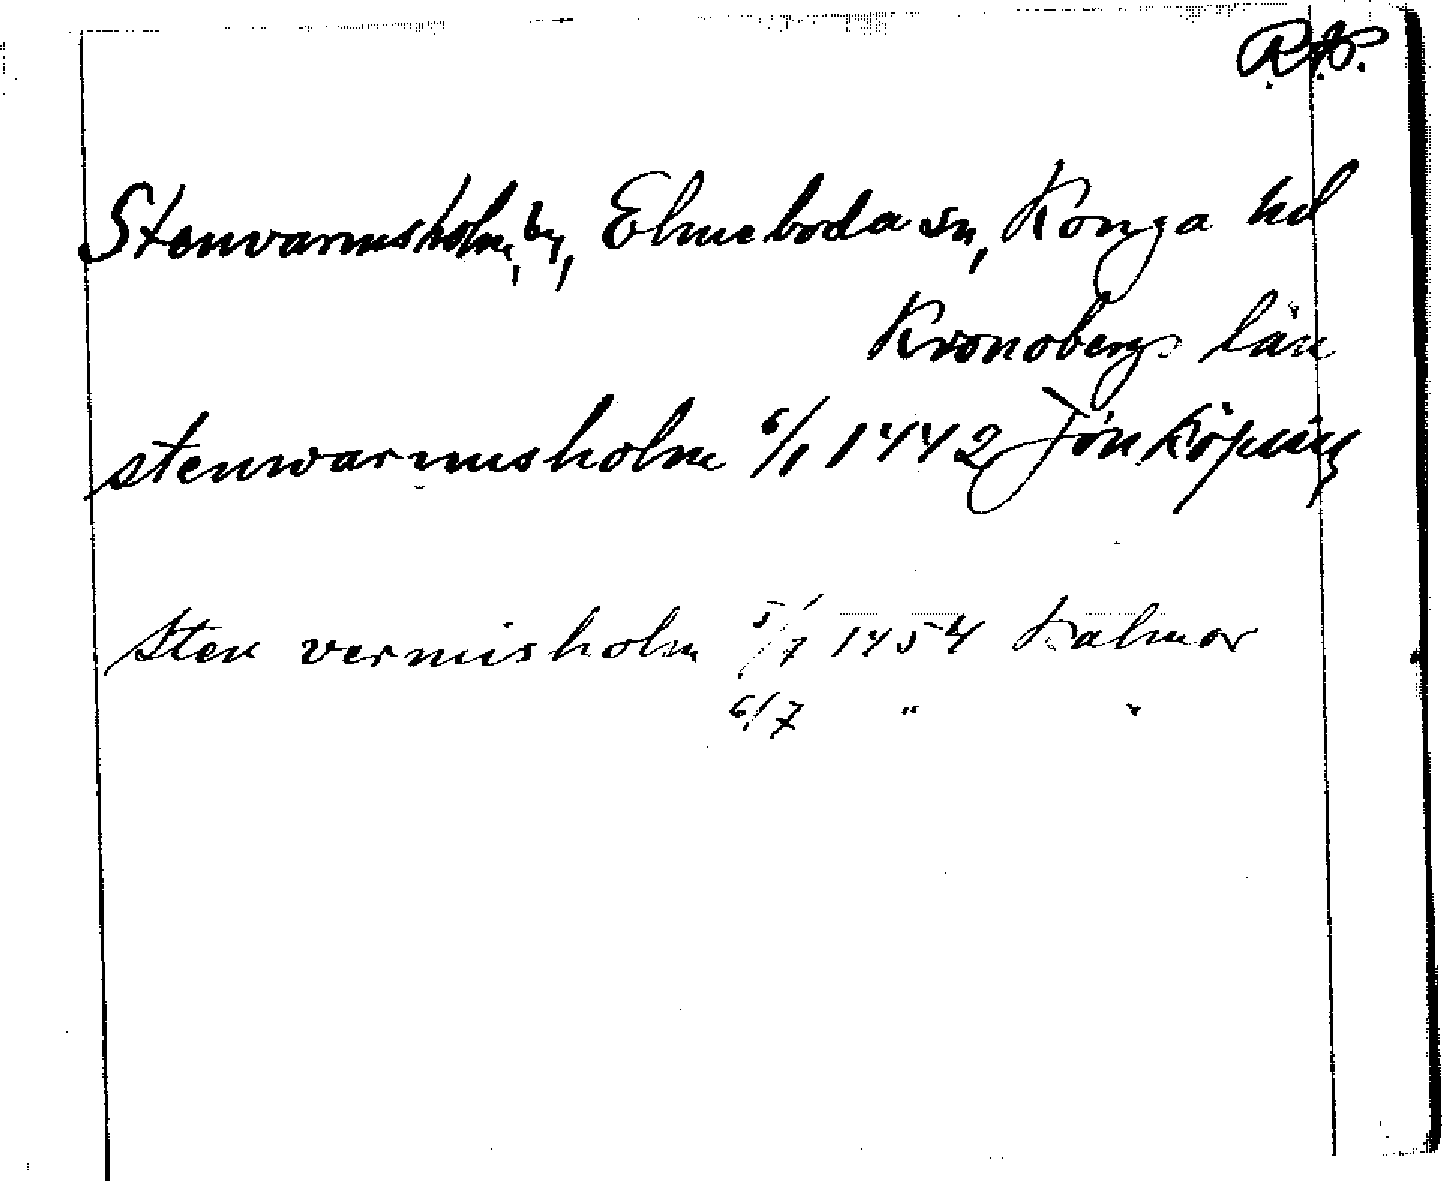 R.Ap.
Stenvarmsholm, by, Elmeboda sn, Konga hd
Kronobergs län
stenwarmsholm 6/1 1442 Jönköping
sten vermisholm 5/7 1454 Kalmar
6/7 " "